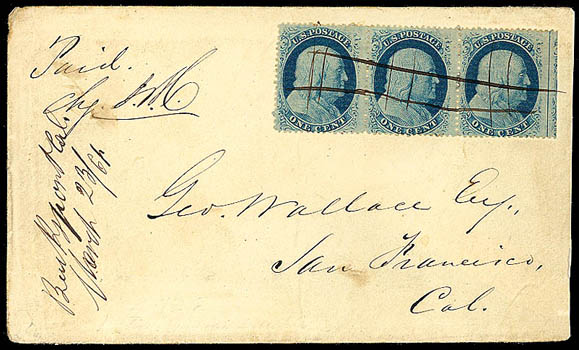 U.S. POSTAGE U.S. POSTAGE U.S. POSTAGE
ONE CENT ONE CENT ONE CENT
Paid.
Cal.
March 23/61
Geo. Wallace Esq.,
San Francisco,
Cal.